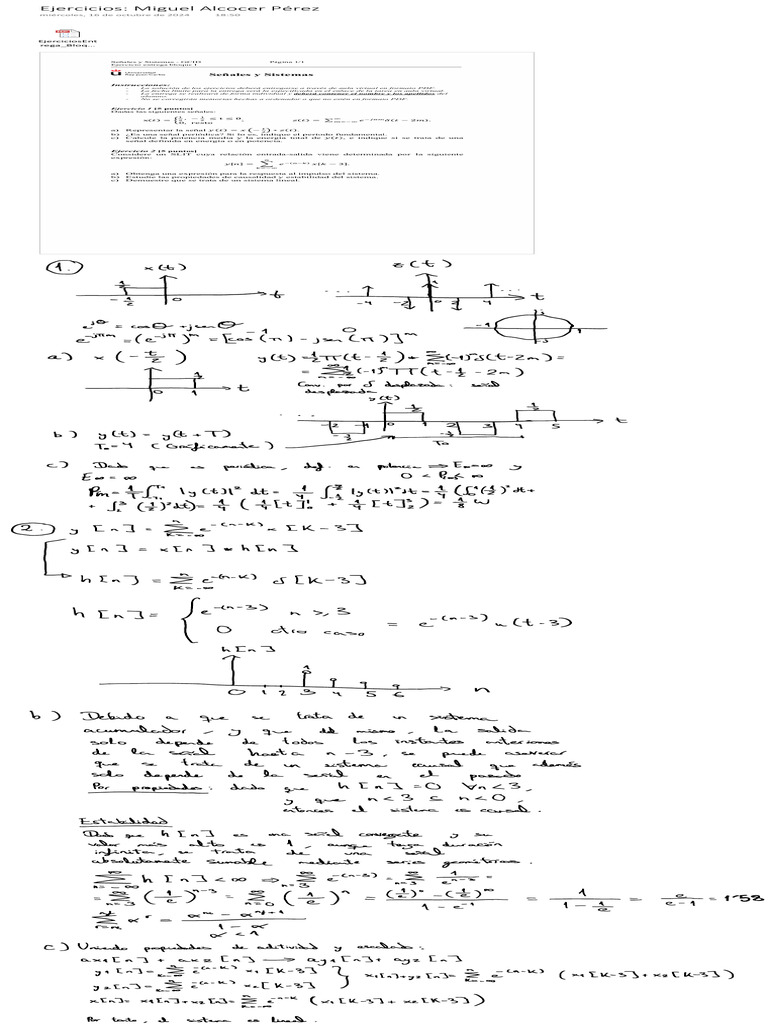 Ejercicios: Miguel Alcocer Pérez
miércoles, 16 de octubre de 2024 18:50
EjerciciosEnt
rega_Bloq...
Señales y Sistemas
Página 1/1
Señales y Sistemas
Instrucciones:
Ejercicio 1 [5 puntos]
Dadas las siguientes señales:
a) Representar la señal y(t) = x(-t/2) * z(t)
b) ¿Es una señal periódica? Si lo es, indique el periodo fundamental.
c) Calcule la potencia media y la energía total de y(t), e indique si se trata de una
señal definida en energía o en potencia.
Ejercicio 2 [5 puntos]
Considere un SLIT cuya relación entrada-salida viene determinada por la siguiente
expresión:
y[n] = Σ e^-(n-k) x[k - 3].
a) Obtenga una expresión para la respuesta al impulso del sistema.
b) Estudie las propiedades de causalidad y estabilidad del sistema.
c) Demuestre que se trata de un sistema lineal.
1. x(t) z(t)
-1/2 0 t
-4 -2 0 2 4 t
e^jθ = cosθ + jsenθ
e^-jπm = (e^-jπ)^m = [cos(π) - jsen(π)]^m
a) x(-t/2) y(t) = 1/2 Π(t - 1/2) * Σ (-1)^m δ(t-2m) =
= Σ 1/2 (-1)^m Π(t - 1/2 - 2m)
Conv. por δ desplazada: señal
desplazada
y(t)
b) y(t) = y(t + T)
T₀ = 4 (Gráficamente)
T₀
c) Dado que es periódica, def. en potencia ⇒ E∞=∞ y
E∞ = ∞ 0 < Pm < ∞
2. y[n] = Σ e^-(n-k) x[k-3]
y[n] = x[n] * h[n]
h[n] = Σ e^-(n-k) δ[k-3]
h[n] = { e^-(n-3) n ≥ 3
0 otro caso = e^-(n-3) u(t-3)
h[n]
0 1 2 3 4 5 6 n
b) Debido a que se trata de un sistema
acumulador, y que el mismo, la salida
solo depende de todos los instantes anteriores
de la señal hasta n-3, se puede aseverar
que se trata de un sistema causal que además
solo depende de la señal en el pasado
Por propiedades: dado que h[n] = 0 ∀n<3,
y que n<3 ⊆ n<0,
entonces el sistema es causal.
Estabilidad
Dado que h[n] es una señal convergente y su
valor más alto es 1, aunque tenga duración
infinita, se trata de una señal
absolutamente sumable mediante series geométricas.
Σ h[n] < ∞ ⇒ Σ e^-(n-3) = Σ 1/e^(n-3) =
= Σ (1/e)^(n-3) = Σ (1/e)^n = ((1/e)^0 - (1/e)^∞)/(1 - e^-1) = 1/(1 - 1/e) = e/(e-1) = 1'58
c) Usando propiedades de aditividad y escalado:
ax1[n] + ax2[n] → ay1[n] + ay2[n]
y1[n] = Σ e^-(n-k) x1[k-3]
y2[n] = Σ e^-(n-k) x2[k-3] } x1[n]+y2[n] = Σ e^-(n-k) (x1[k-3]+x2[k-3])
x[n] = x1[n]+x2[n] = Σ e^-(n-k) (x1[k-3]+x2[k-3])
Por tanto, el sistema es lineal.